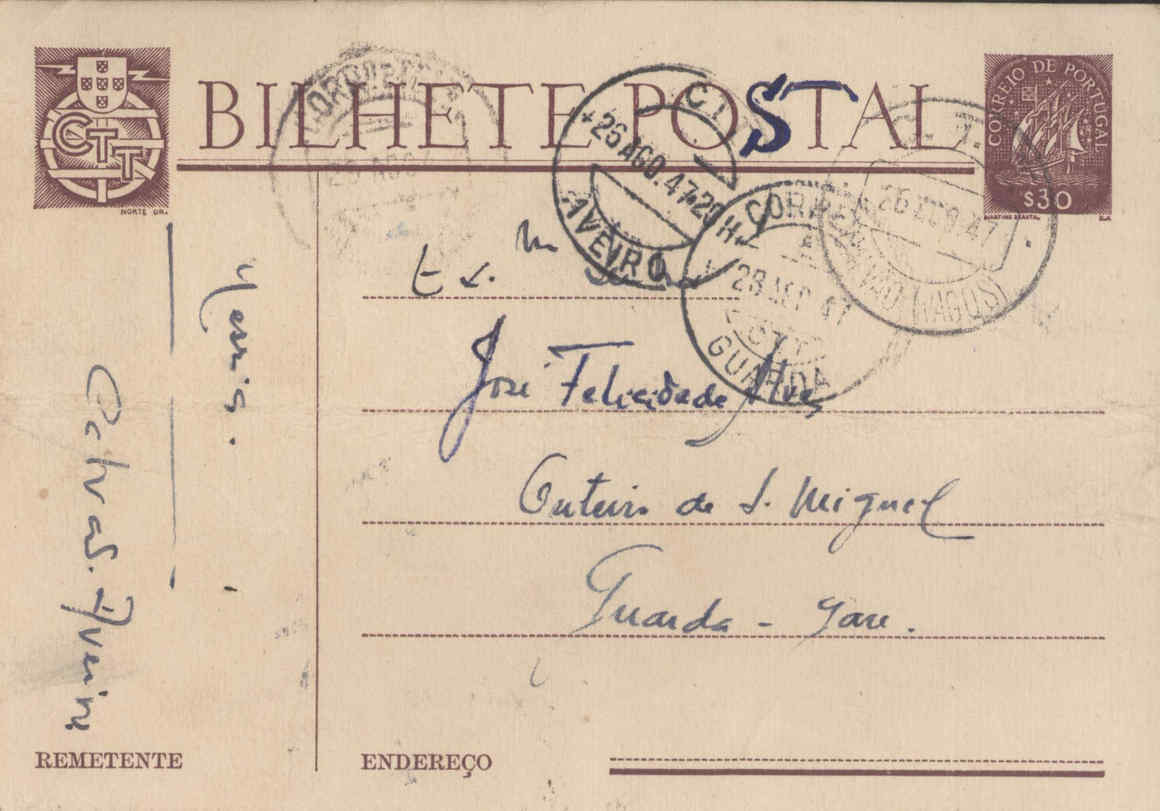 CTT
NORTE GR.
BILHETE POSTAL
CORREIO DE PORTUGAL
$30
CTT
26 AGO. 47-20H
AVEIRO
CORRE
28 AGO 47
CTT
GUARDA
26 AGO 47
(VAGOS)
Ex. mo Snr.
José Felicidade Alves
Outeiro de S. Miguel
Guarda - Gare.
Aveiro
REMETENTE
ENDEREÇO